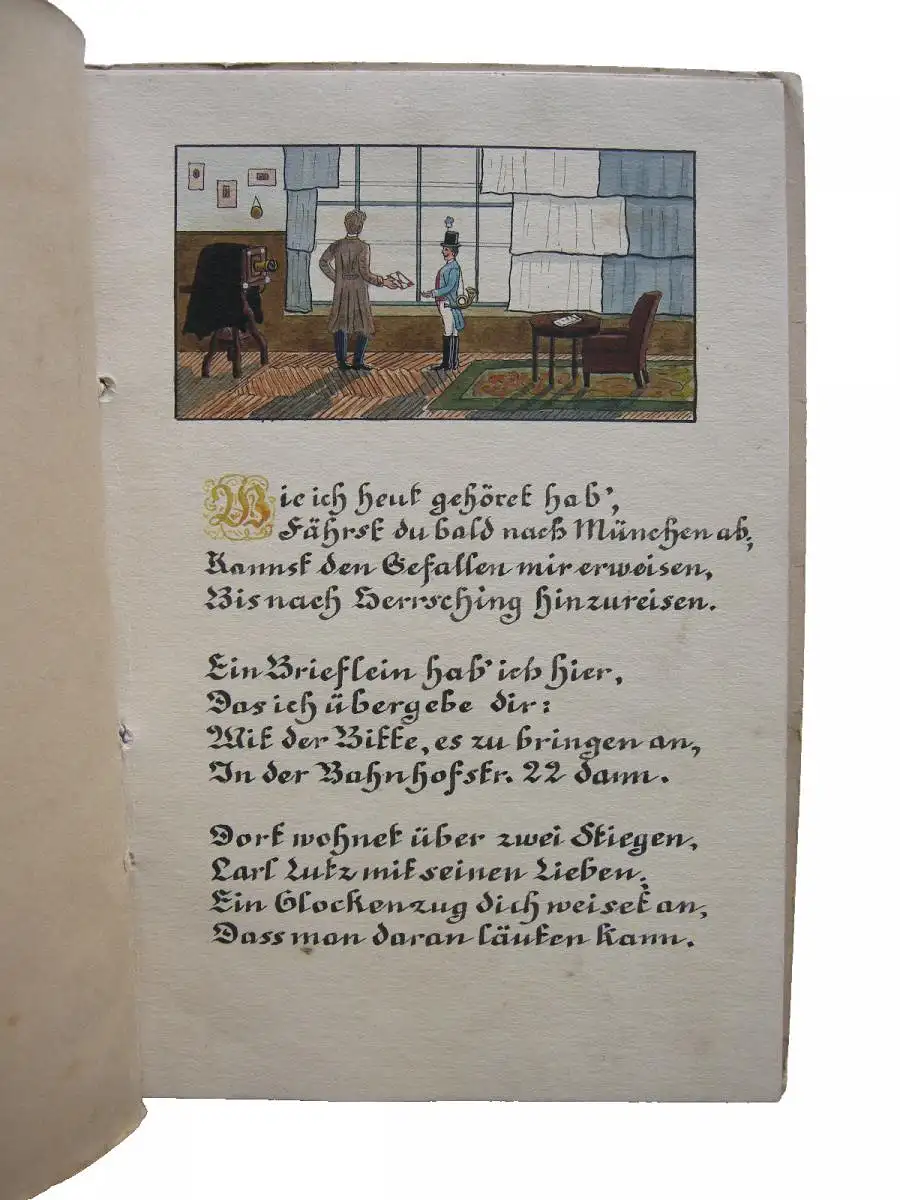 Wie ich heut gehöret hab',
Fährst du bald nach München ab;
Kannst den Gefallen mir erweisen,
Bis nach Herrsching hinzureisen.
Ein Brieflein hab' ich hier,
Das ich übergebe dir:
Mit der Bitte, es zu bringen an,
In der Bahnhofstr. 22 dann.
Dort wohnet über zwei Stiegen,
Carl Lutz mit seinen Lieben;
Ein Glockenzug dich weiset an,
Dass man daran läuten kann.